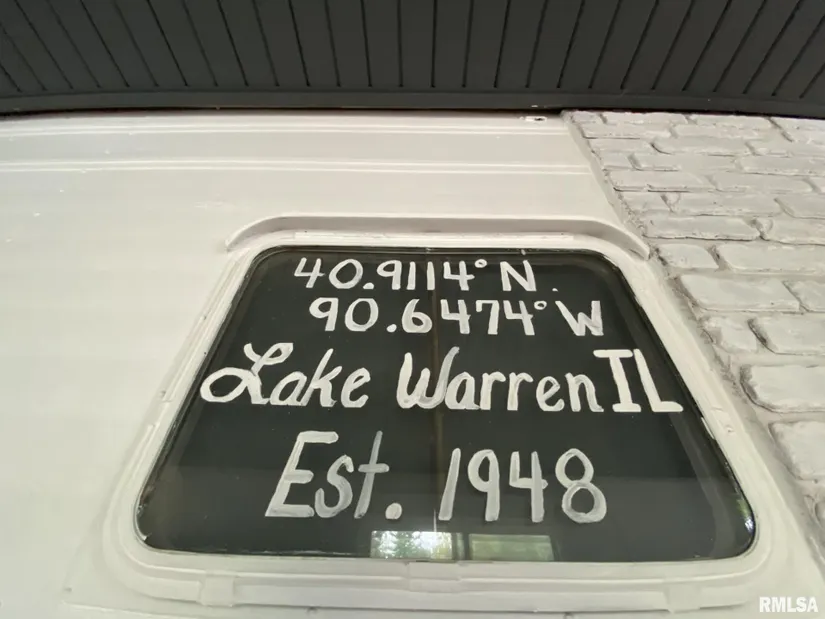 40.9114° N.
90.6474° W
Lake Warren IL
Est. 1948
RMLSA